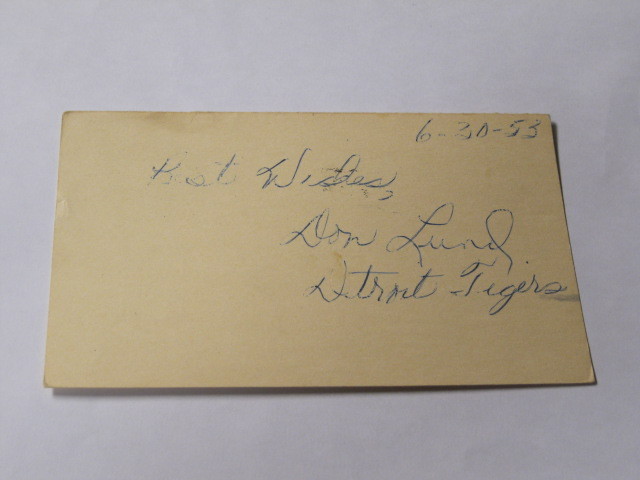 6-30-53
Best Wishes,
Don Lund
Detroit Tigers